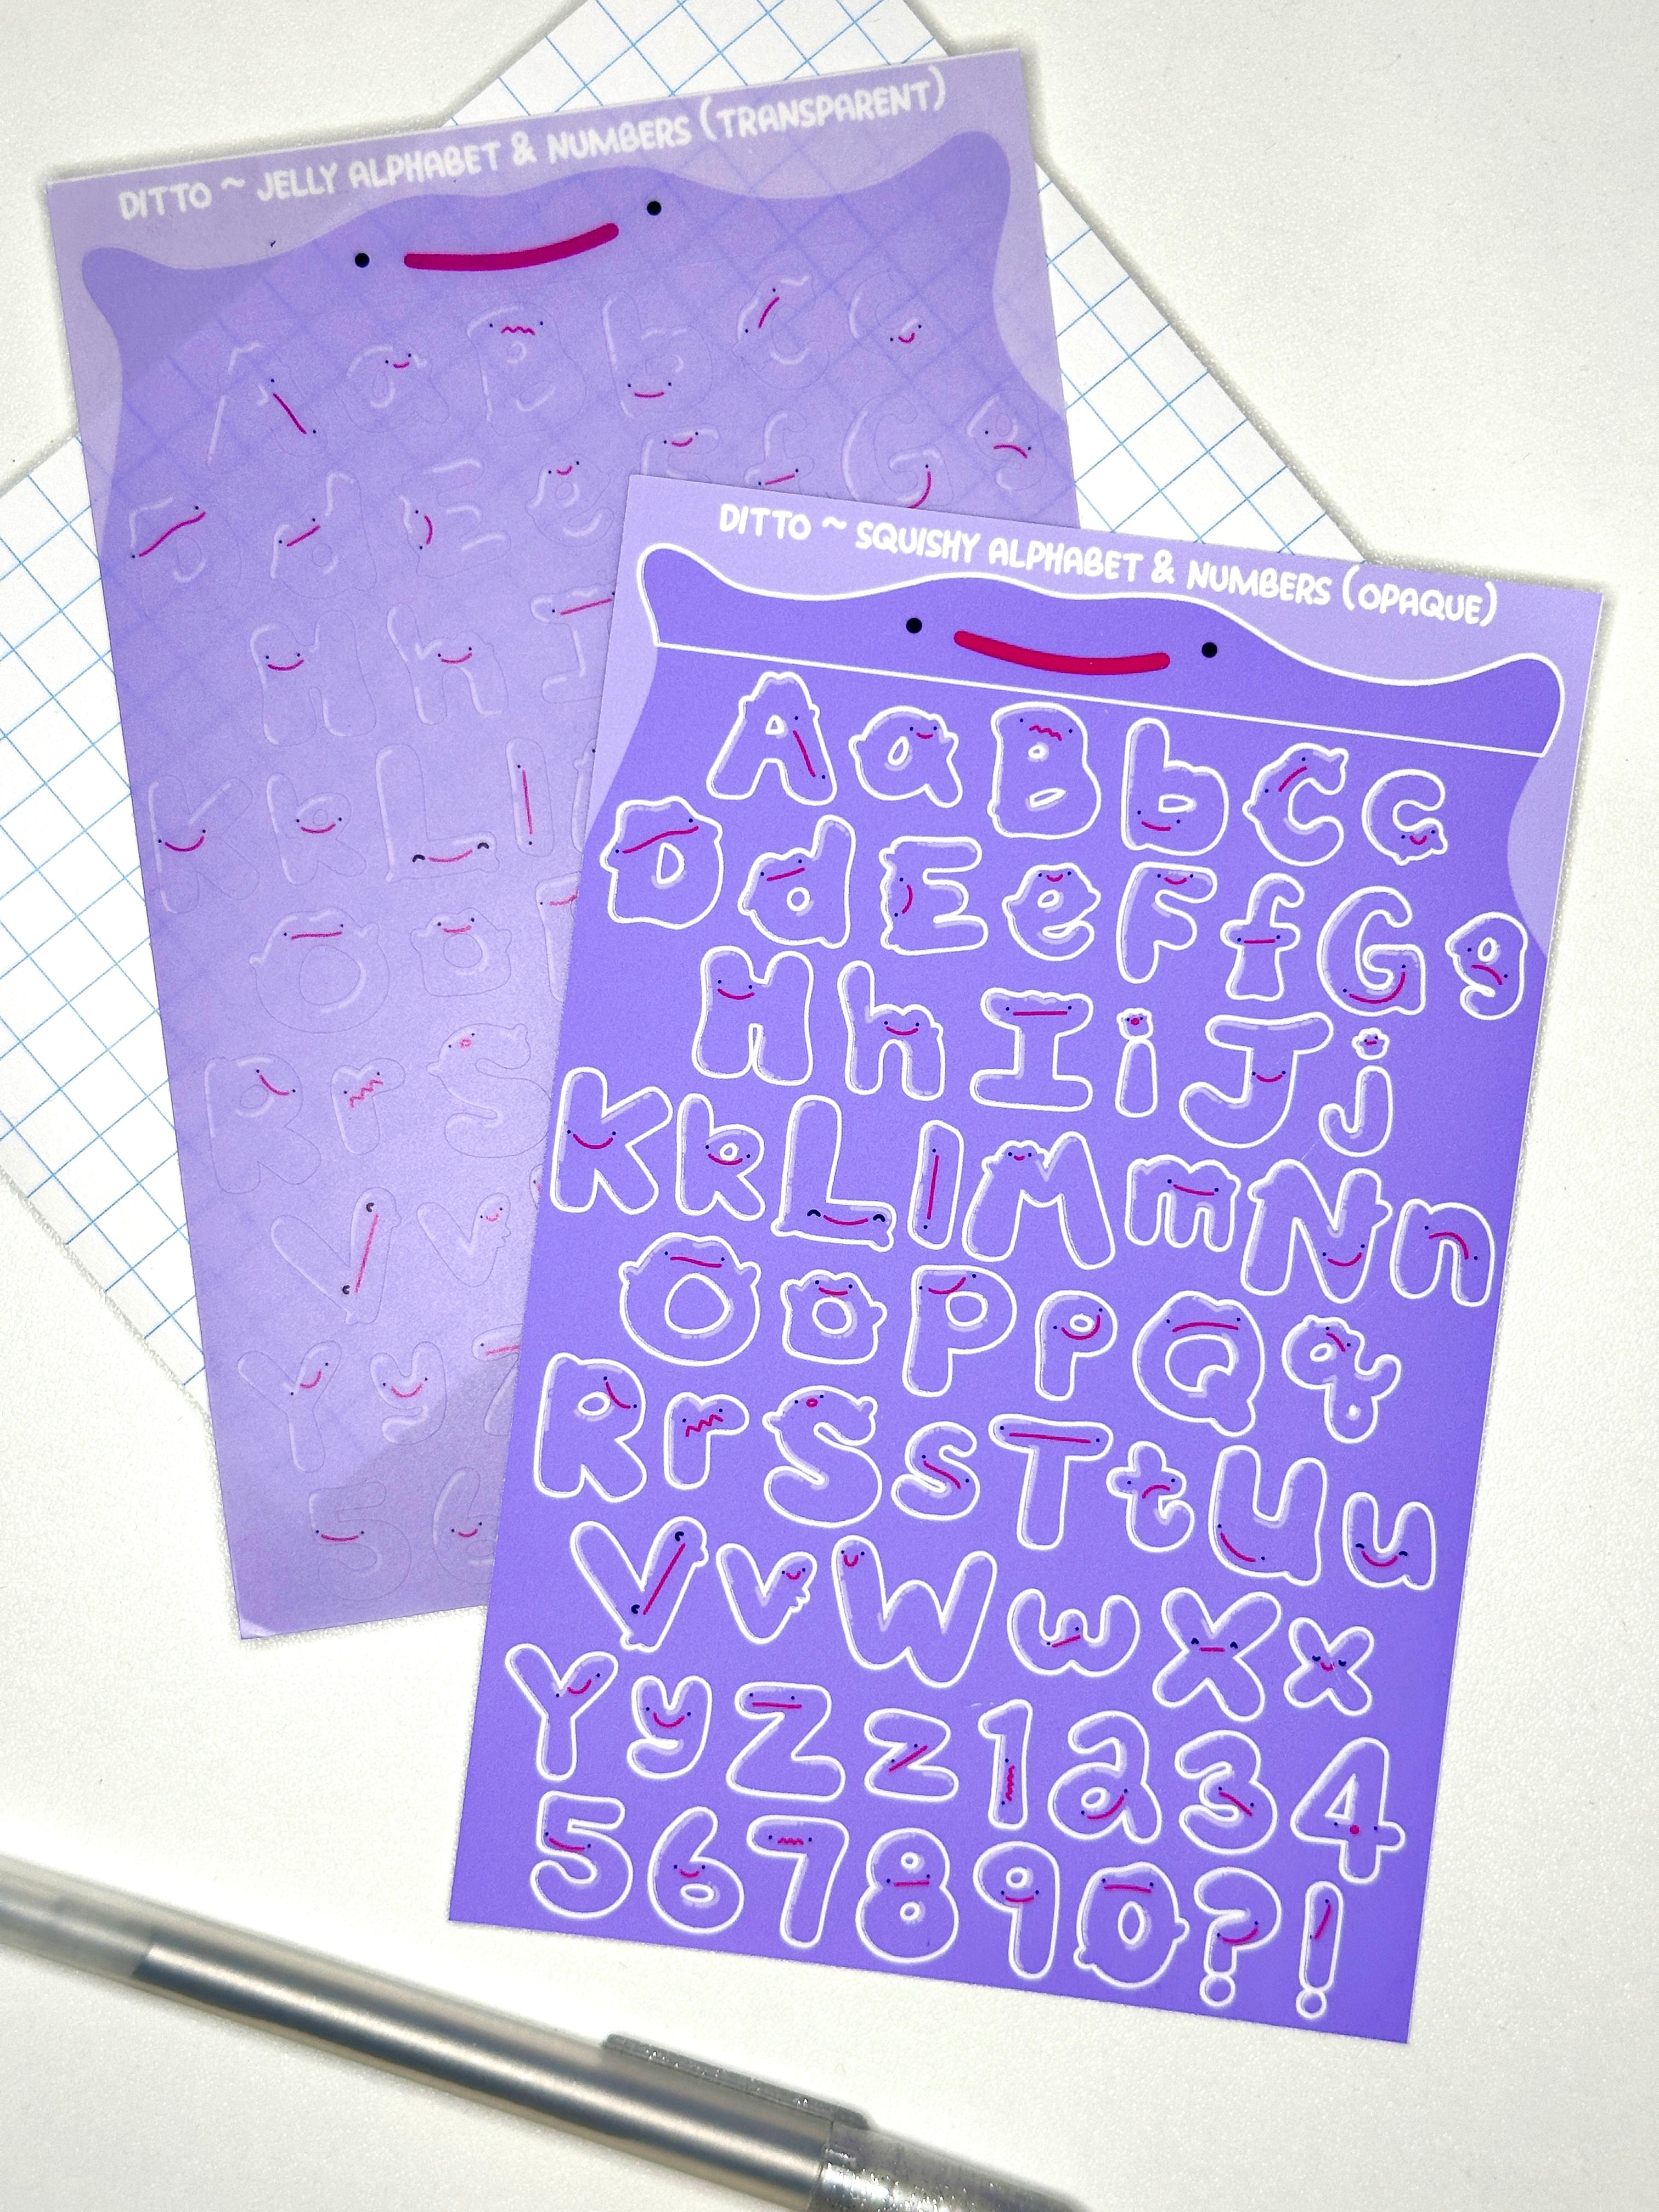 DITTO ~ JELLY ALPHABET & NUMBERS (TRANSPARENT)
A a B b C c
D d E e F f G g
H h I
K k L l
O o P
R r S
V v
Y y Z
5 6
DITTO ~ SQUISHY ALPHABET & NUMBERS (OPAQUE)
A a B b C c
D d E e F f G g
H h I i J j
K k L l M m N n
O o P p Q q
R r S s T t U u
V v W w X x
Y y Z z 1 2 3 4
5 6 7 8 9 0 ? !